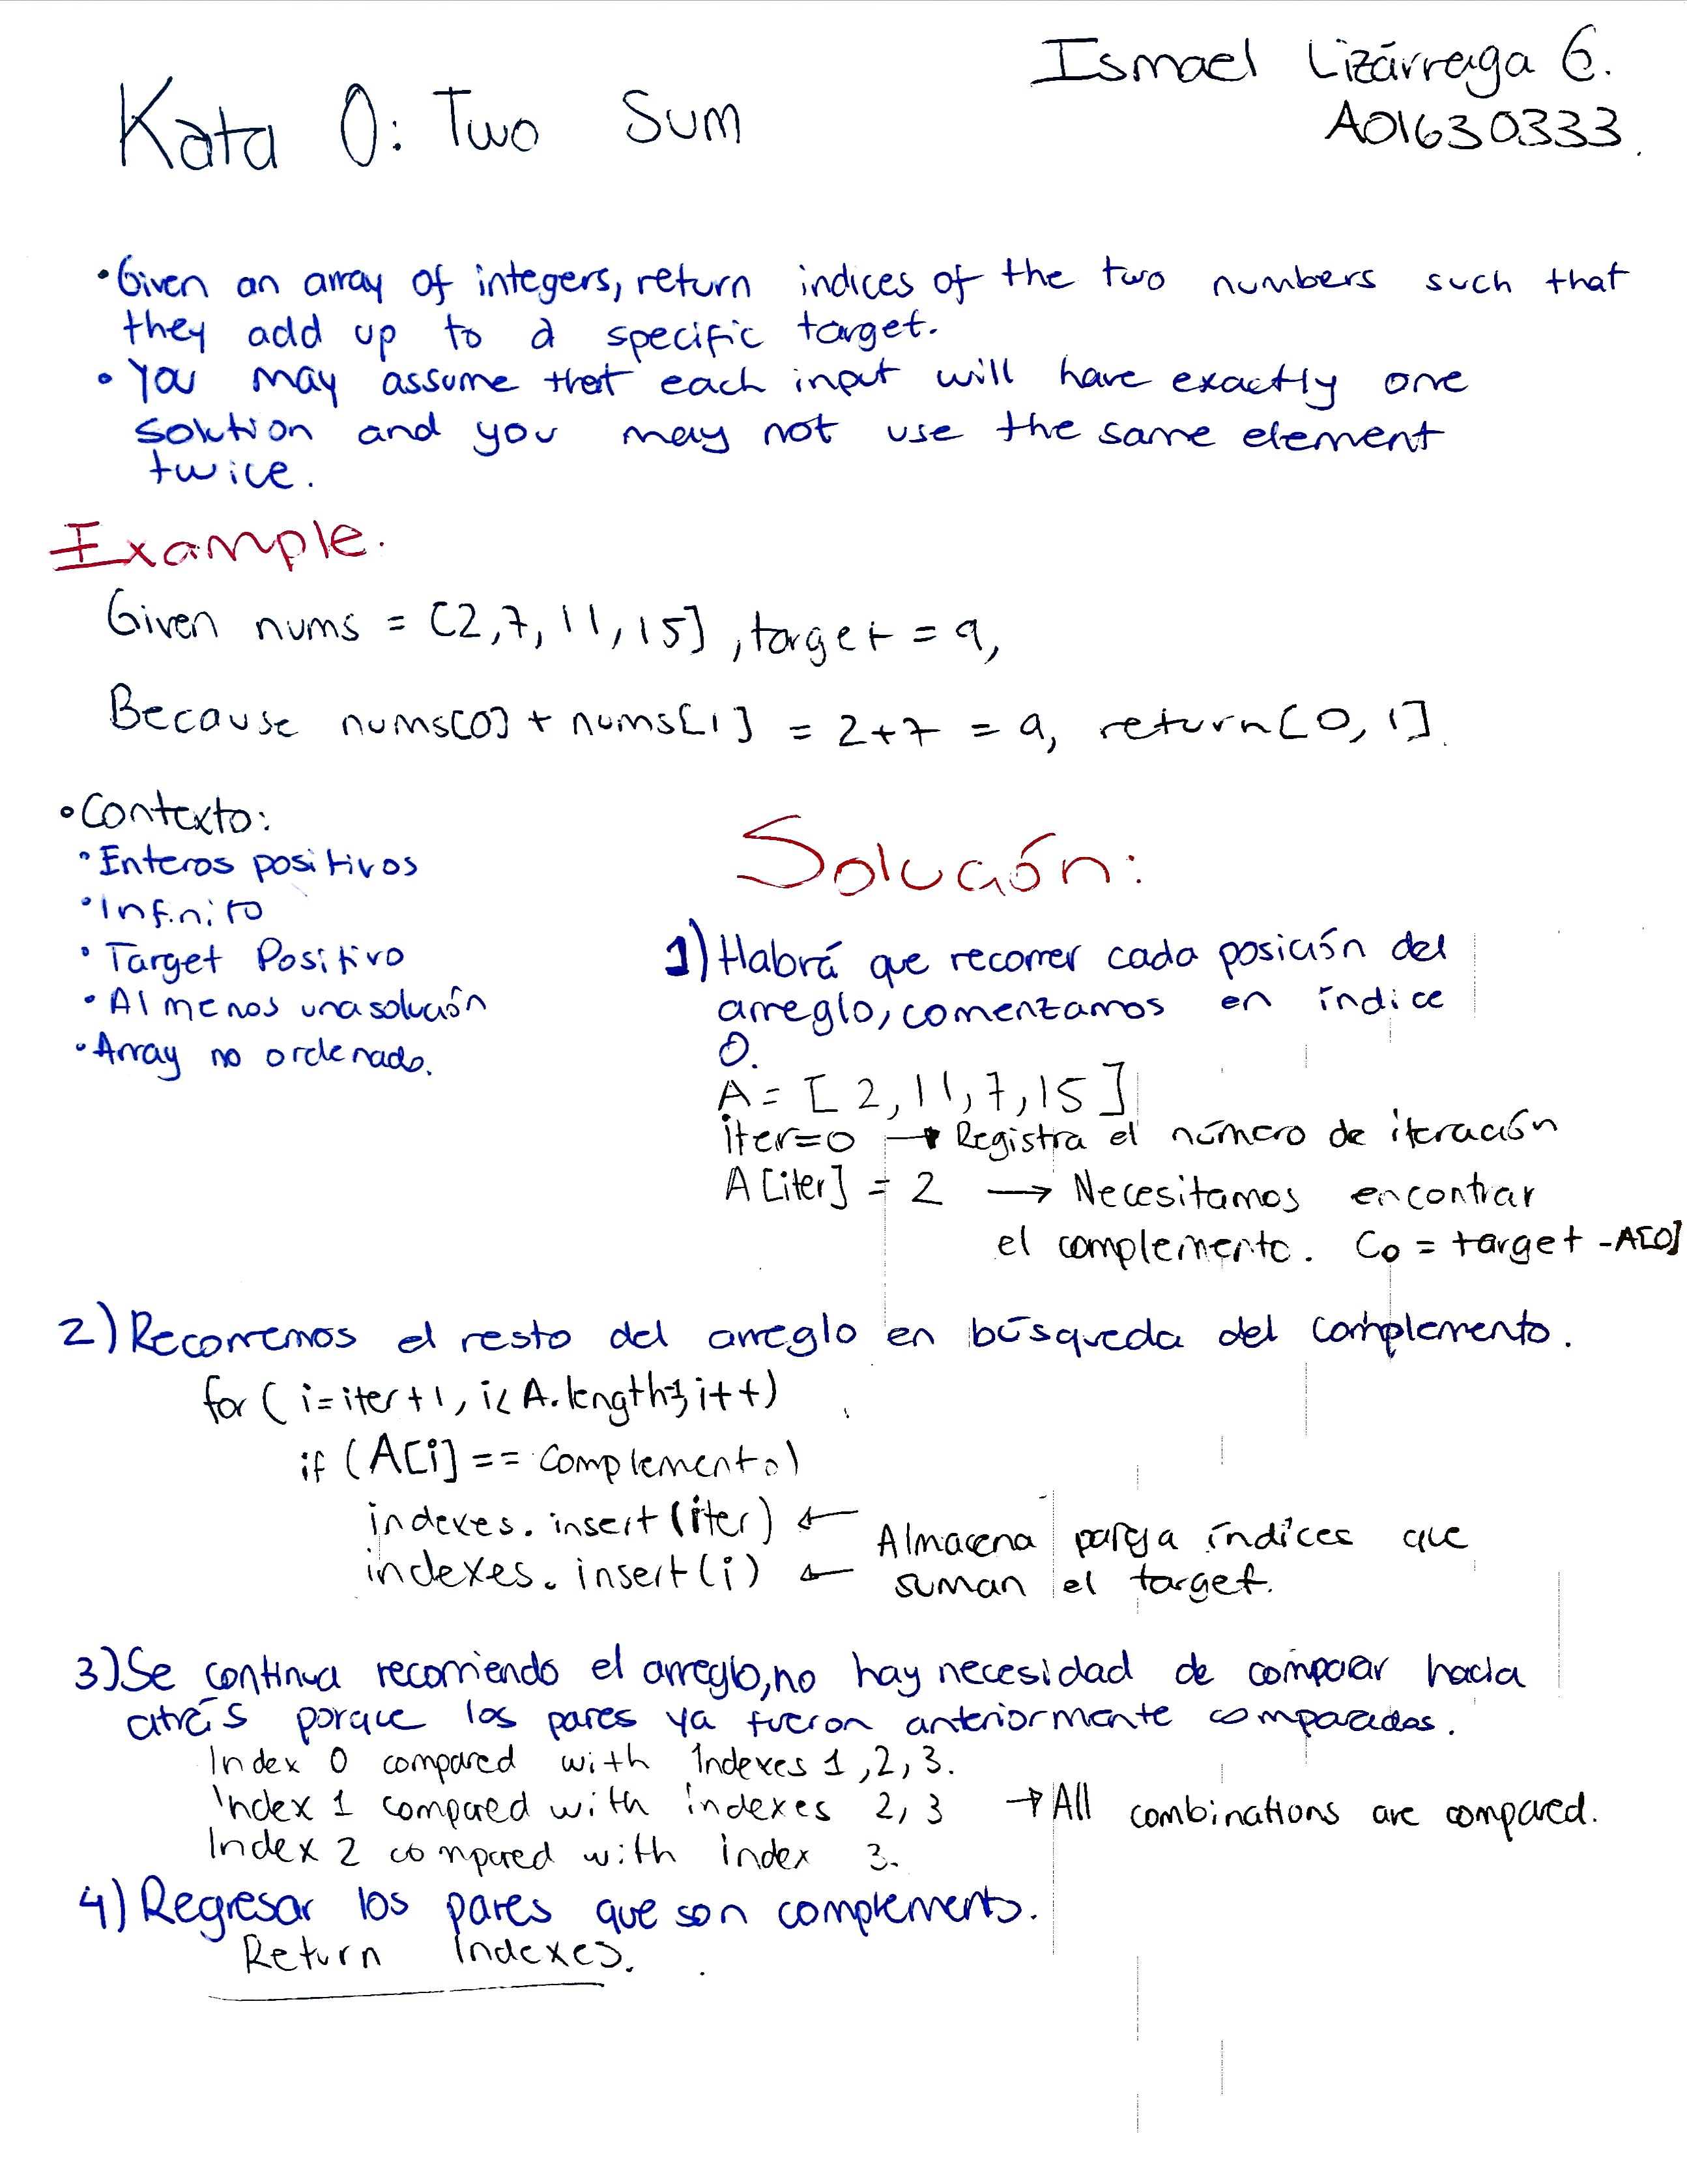 Ismael Lizárraga G.
Kata 0: Two Sum
A01630333.
• Given an array of integers, return indices of the two numbers such that
they add up to a specific target.
• You may assume that each input will have exactly one
solution and you may not use the same element
twice.
Example.
Given nums = [2,7,11,15], target = 9,
Because nums[0] + nums[1] = 2+7 = 9, return[0,1].
• Contexto:
• Enteros positivos
• Infinito
• Target Positivo
• Al menos una solución
• Array no ordenado.
Solución:
1) Habrá que recorrer cada posición del
arreglo, comenzamos en índice
0.
A = [2,11,7,15]
iter=0 → Registra el número de iteración
A[iter] = 2 → Necesitamos encontrar
el complemento. C0 = target - A[0]
2) Recorremos el resto del arreglo en búsqueda del complemento.
for (i=iter+1, i< A.length; i++)
if (A[i] == complemento)
indexes.insert(iter) ←
indexes.insert(i) ←
Almacena pareja índices que
suman el target.
3) Se continua recorriendo el arreglo, no hay necesidad de comparar hacia
atrás porque los pares ya fueron anteriormente comparados.
Index 0 compared with Indexes 1,2,3.
Index 1 compared with indexes 2,3 → All combinations are compared.
Index 2 compared with index 3.
4) Regresar los pares que son complemento.
Return Indexes.